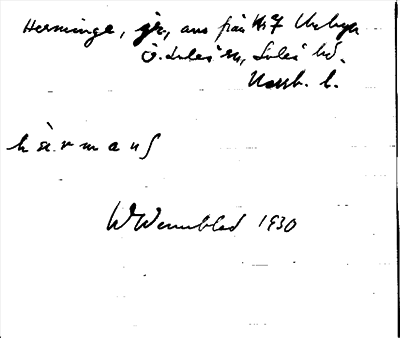 Herminge, jr, ans från N:7 Unbyn
Ö. Luleå sn, Luleå hd.
Norrb. l.
hä.rmaŋ
WWennblad 1930